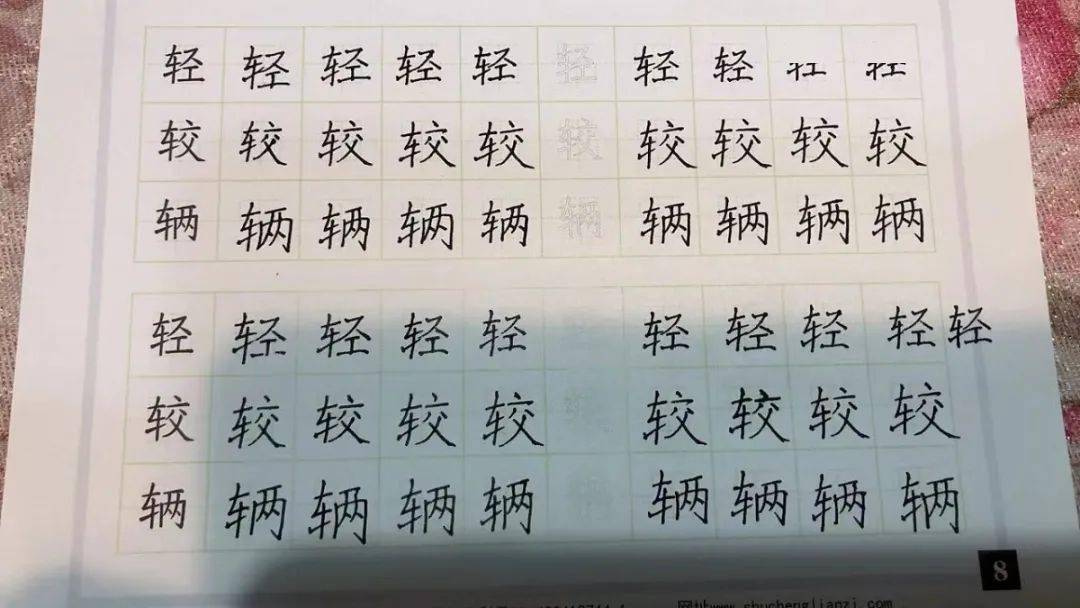 轻 轻 轻 轻 轻 轻 轻 轻
较 较 较 较 较 较 较 较 较 较
辆 辆 辆 辆 辆 辆 辆 辆 辆 辆
轻 轻 轻 轻 轻 轻 轻 轻 轻 轻
较 较 较 较 较 较 较 较 较
辆 辆 辆 辆 辆 辆 辆 辆 辆
8